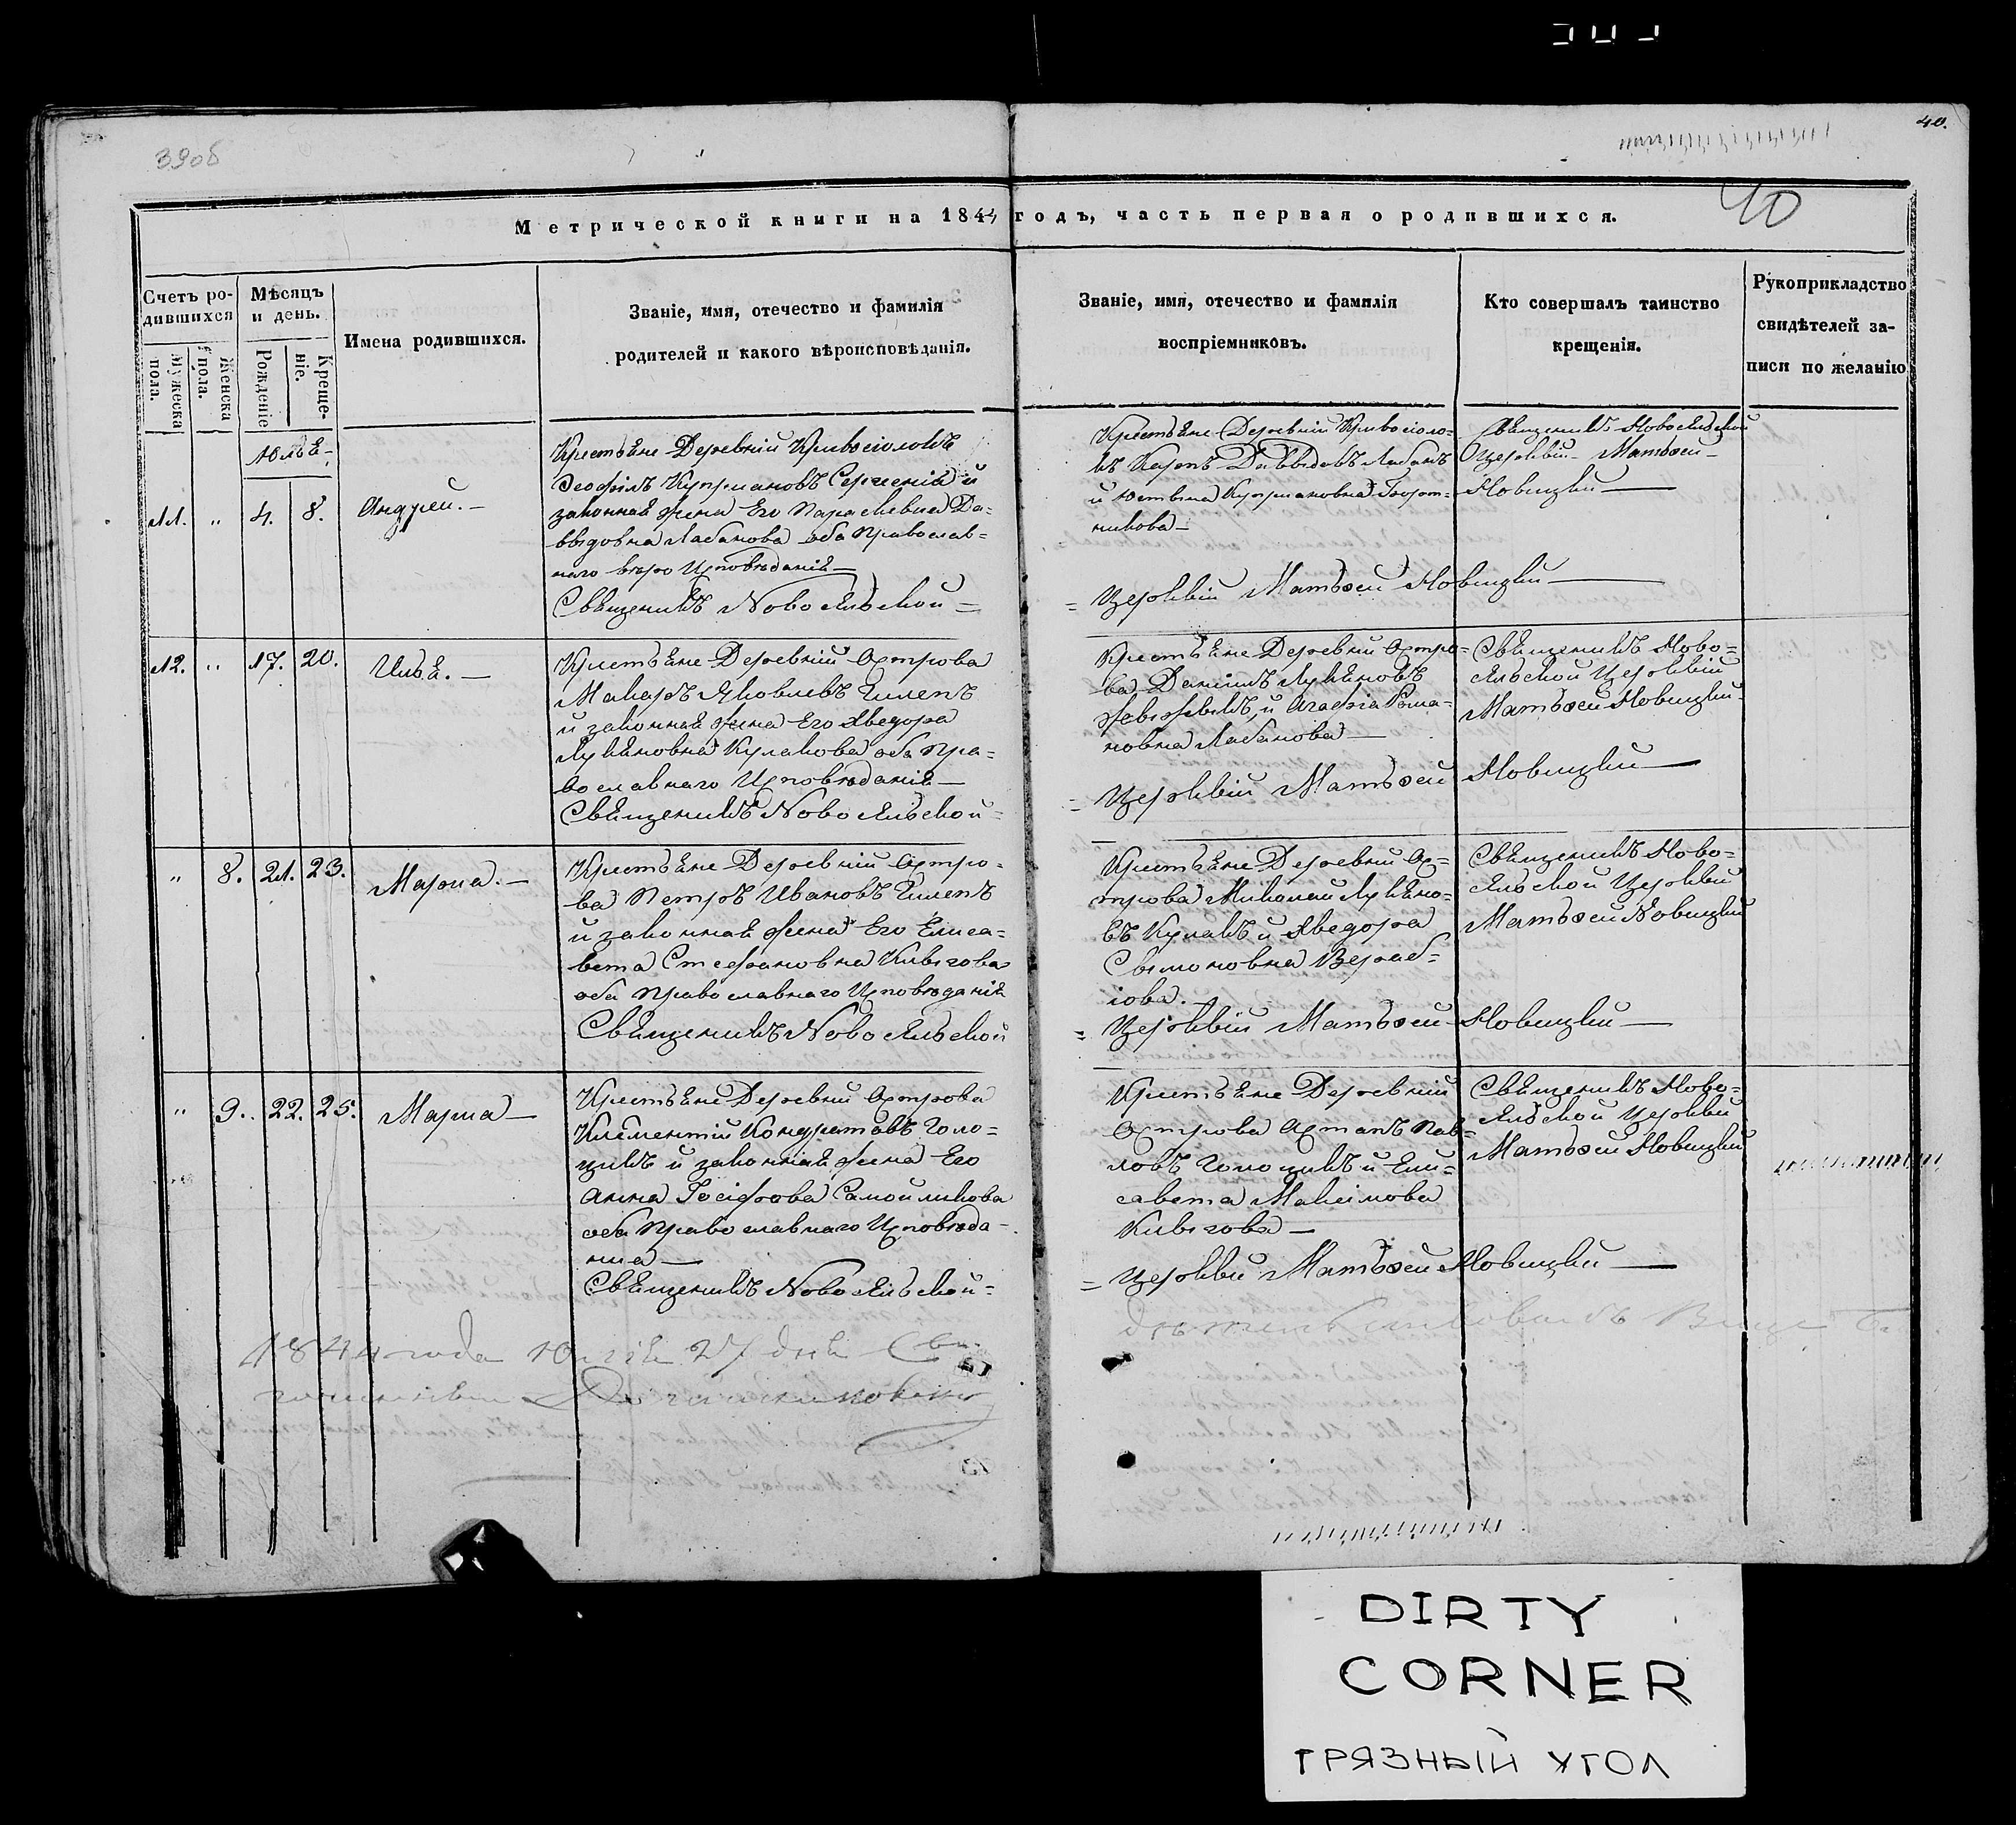 39об
40.
40
Метрической книги на 1844 годъ, часть первая о родившихся.
Счетъ ро-
дившихся
Мужеска пола.
Женска пола.
Мѣсяцъ
и день.
Рожденіе
Креще-
ніе.
Имена родившихся.
Званіе, имя, отечество и фамилія
родителей и какого вѣроисповѣданія.
Званіе, имя, отечество и фамилія
воспріемниковъ.
Кто совершалъ таинство
крещенія.
Рукоприкладство
свидѣтелей за-
писи по желанію
Юлья
11. " 4. 8. Андрей.
Крестьяне Деревній Кривоголовъ
Ѳеофілъ Купріановъ Сергеній и
законная жена Его Параскевиа Да=
выдовна Лабанова оба Православ=
наго вѣро Исповѣданія
Священикъ Новоельской =
Крестьяне Деревній Кривоголо=
въ Карпъ Даввыдовъ Лабанъ
и Юстына Купріановна
никова
= Церквій Матѳей Новицкій
Священикъ Новоельской
Церквій Матѳей
Новицкій
12. " 17. 20. Илья.
Крестьяне Деревній Острова
Макаръ Яковлевъ Гилепъ
и законная жена Его Хведора
Лукяновна Кулакова оба Пра=
вославнаго Исповѣданія
Священикъ Новоельской =
Крестьяне Деревній Остро=
ва Данiилъ Лукяновъ
и Агафія Рома=
новна Лабанова
= Церквій Матѳей Новицкій
Священикъ Ново=
ельской Церквій
Матѳей Новицкій
" 8. 21. 23. Марна.
Крестьяне Деревній Остро=
ва Петръ Ивановъ Гилепъ
и законная жена Его Елиса=
вета Стефановна Кивгова
оба Православнаго Исповѣданія
Священикъ Новоельской
Крестьяне Деревній Ос=
трова Миколай Лукяно=
въ Кулакъ и Хведора
Сымоновна
іова.
= Церквій Матѳей Новицкій
Священикъ Ново=
ельской Церквій
Матѳей Новицкій
" 9. 22. 25. Марна
Крестьяне Деревній Острова
Клементій Кондратовъ Голо=
цикъ и законная жена Его
Анна Іосіфова Самойликова
оба Православнаго Исповѣда=
ниа
Священикъ Новоельской =
Крестьяне Деревній
Острова Остапъ Пав=
ловъ Голоцикъ и Ели=
савета Максімова
Кивгова
= Церквій Матѳей Новицкій
Священикъ Ново=
ельской Церквій
Матѳей Новицкій
1844 года Юлія 27 дня
DIRTY
CORNER
ГРЯЗНЫЙ УГОЛ